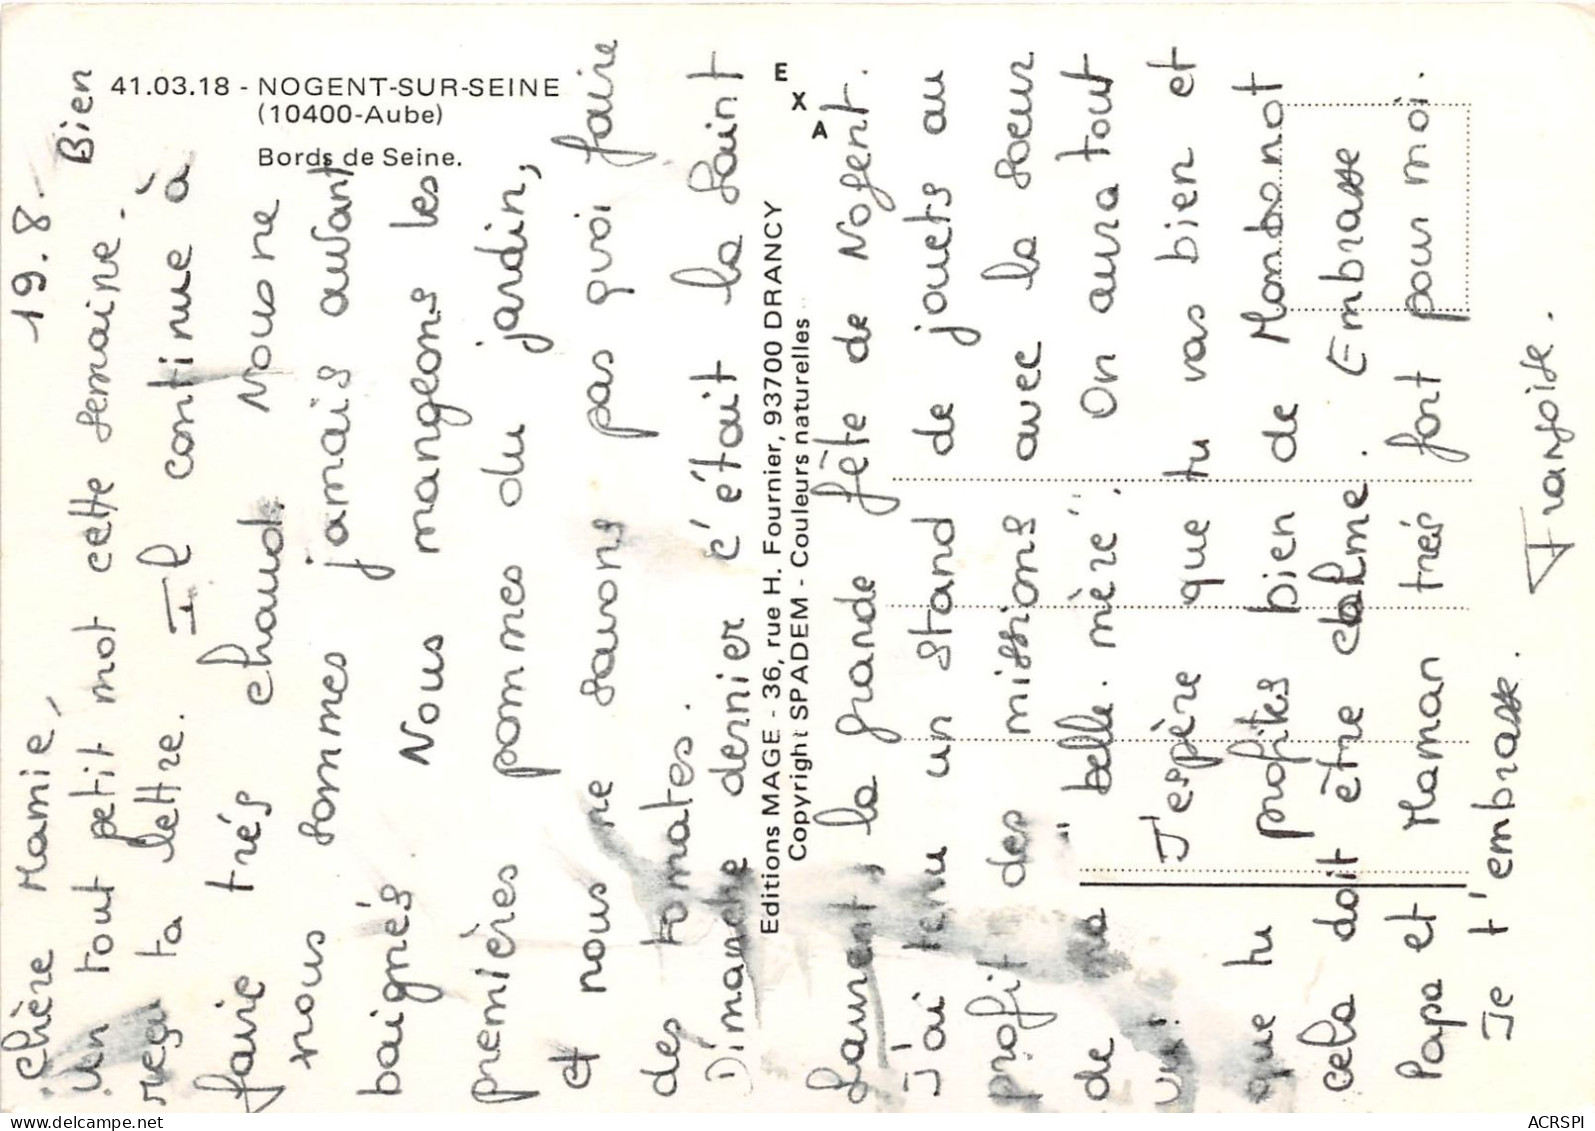 41.03.18 - NOGENT-SUR-SEINE
(10400-Aube)
Bords de Seine.
E
X
A
Editions MAGE - 36, rue H. Fournier, 93700 DRANCY
Copyright SPADEM - Couleurs naturelles
19.8.
Chère Mamie,
Un tout petit mot cette semaine. Bien
reçu ta lettre. Il continue à
faire trés chaud. Nous ne
nous sommes jamais autant
baignés. Nous mangeons les
premières pommes du jardin,
et nous ne savons pas quoi faire
des tomates.
Dimanche dernier c'était la Saint
Laurent, la grande fête de Nogent.
J'ai tenu un stand de jouets au
profit des missions avec la soeur
de ma "belle. mère". On aura tout
vu!
J'espère que tu vas bien et
que tu profites bien de Monbonnot
cela doit être calme. Embrasse
Papa et Maman trés fort pour moi.
Je t'embrasse.
Françoise.
ACRSPI